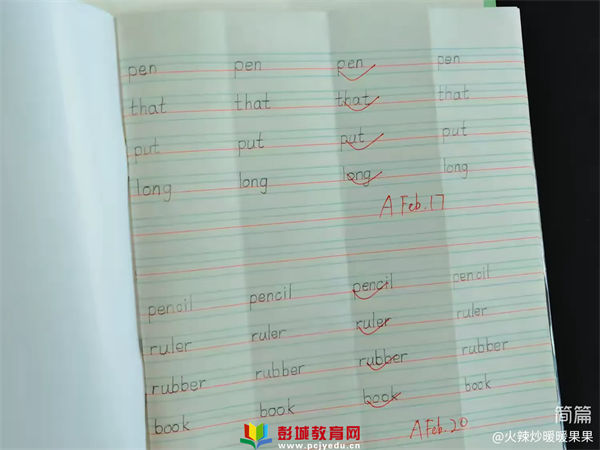 pen pen pen pen
that that that that
put put put put
long long long long
A Feb.17
pencil pencil pencil pencil
ruler ruler ruler ruler
rubber rubber rubber rubber
book book book book
A Feb.20
简篇
@火辣炒暖暖果果
彭城教育网
www.pcjyedu.cn